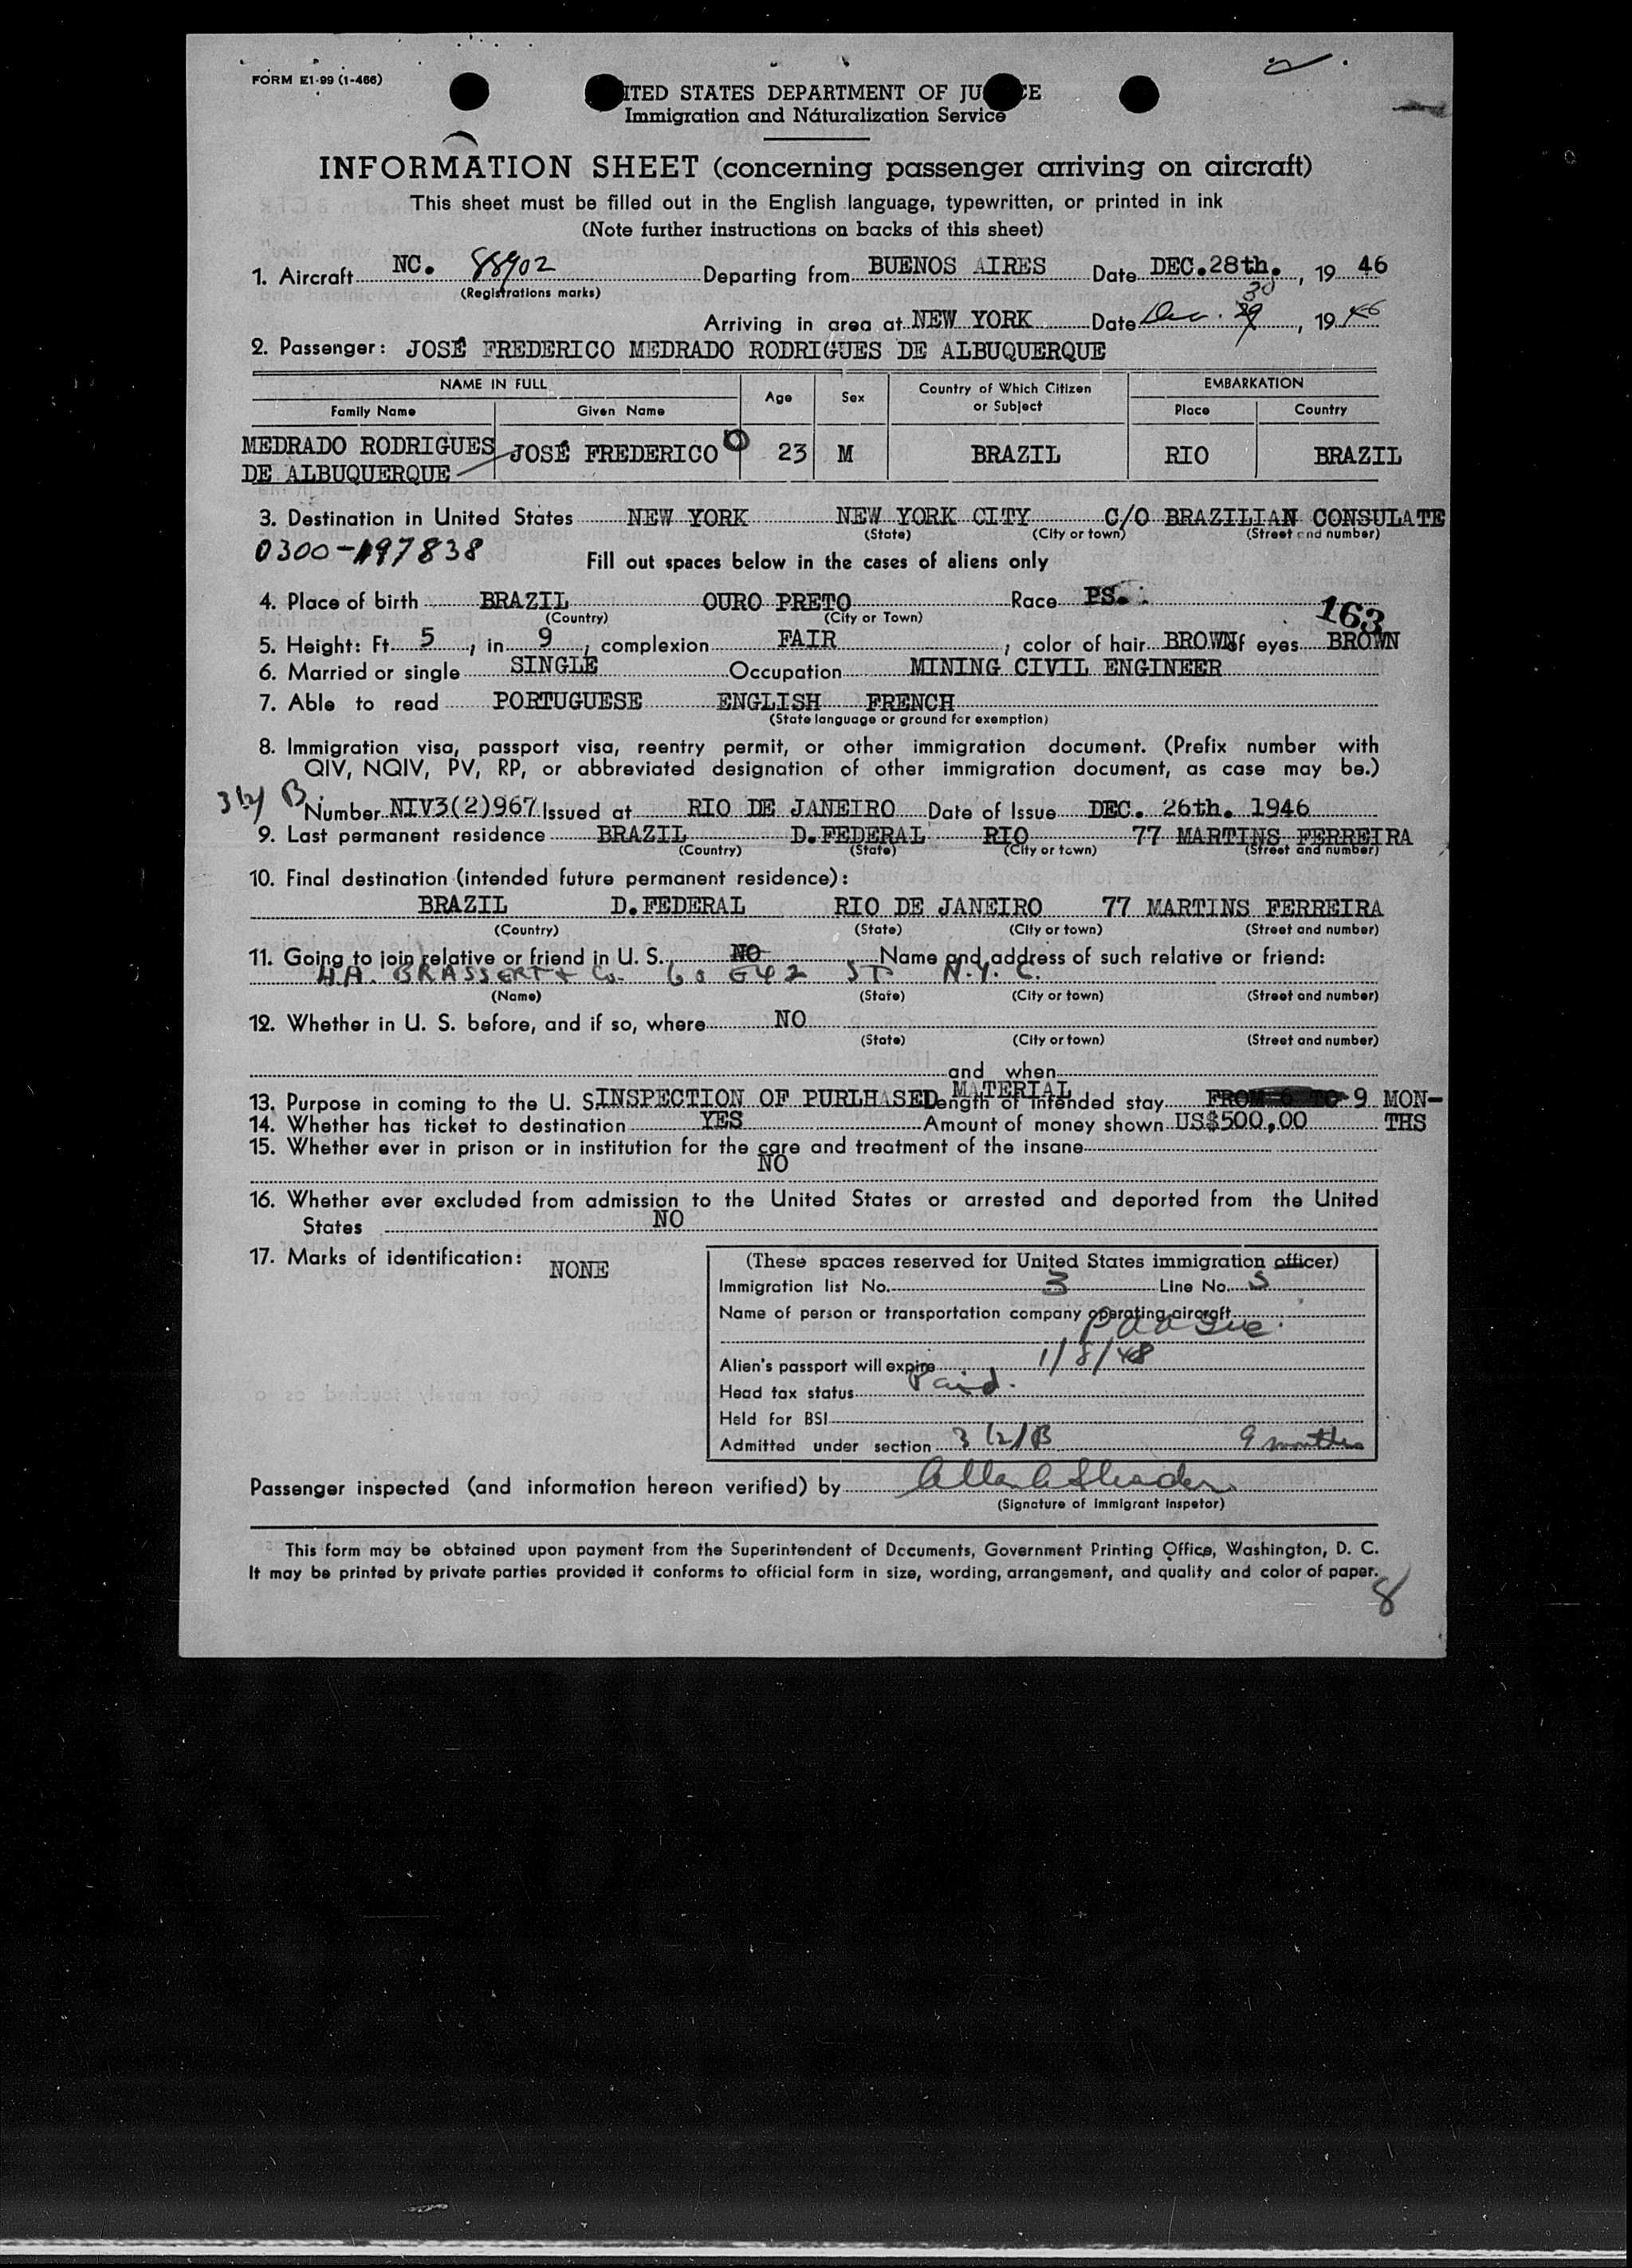 FORM E1-99 (1-466)
ITED STATES DEPARTMENT OF JU CE
Immigration and Naturalization Service
INFORMATION SHEET (concerning passenger arriving on aircraft)
This sheet must be filled out in the English language, typewritten, or printed in ink
(Note further instructions on backs of this sheet)
1. Aircraft NC. 88902 Departing from BUENOS AIRES Date DEC.28th., 19 46
(Registrations marks)
30
Arriving in area at NEW YORK Date Dec. 29, 19 46
2. Passenger: JOSÉ FREDERICO MEDRADO RODRIGUES DE ALBUQUERQUE
NAME IN FULL Age Sex Country of Which Citizen or Subject EMBARKATION
Family Name Given Name Place Country
MEDRADO RODRIGUES JOSÉ FREDERICO 23 M BRAZIL RIO BRAZIL
DE ALBUQUERQUE
3. Destination in United States NEW YORK NEW YORK CITY C/O BRAZILIAN CONSULATE
(State) (City or town) (Street and number)
0300-197838
Fill out spaces below in the cases of aliens only
4. Place of birth BRAZIL OURO PRETO Race PS.
(Country) (City or Town)
163
5. Height: Ft. 5, in 9, complexion FAIR, color of hair BROWN of eyes BROWN
6. Married or single SINGLE Occupation MINING CIVIL ENGINEER
7. Able to read PORTUGUESE ENGLISH FRENCH
(State language or ground for exemption)
8. Immigration visa, passport visa, reentry permit, or other immigration document. (Prefix number with
QIV, NQIV, PV, RP, or abbreviated designation of other immigration document, as case may be.)
3(2)B
Number NIV3(2)967 Issued at RIO DE JANEIRO Date of Issue DEC. 26th. 1946
9. Last permanent residence BRAZIL D.FEDERAL RIO 77 MARTINS FERREIRA
(Country) (State) (City or town) (Street and number)
10. Final destination (intended future permanent residence):
BRAZIL D.FEDERAL RIO DE JANEIRO 77 MARTINS FERREIRA
(Country) (State) (City or town) (Street and number)
11. Going to join relative or friend in U. S. NO Name and address of such relative or friend:
H.A. BRASSERT & Co. 60 E 42 ST N.Y. C.
(Name) (State) (City or town) (Street and number)
12. Whether in U. S. before, and if so, where NO
(State) (City or town) (Street and number)
and when
13. Purpose in coming to the U. S. INSPECTION OF PURLHASED MATERIAL Length of intended stay FROM 6 TO 9 MON-
14. Whether has ticket to destination YES Amount of money shown US$500,00 THS
15. Whether ever in prison or in institution for the care and treatment of the insane
NO
16. Whether ever excluded from admission to the United States or arrested and deported from the United
States NO
17. Marks of identification: NONE
(These spaces reserved for United States immigration officer)
Immigration list No. 3 Line No. 5
Name of person or transportation company operating aircraft
Alien's passport will expire 1/8/48
Head tax status Paid.
Held for BSI
Admitted under section 3(2)B 9 months
Passenger inspected (and information hereon verified) by
(Signature of Immigrant Inspetor)
This form may be obtained upon payment from the Superintendent of Documents, Government Printing Office, Washington, D. C.
It may be printed by private parties provided it conforms to official form in size, wording, arrangement, and quality and color of paper.
8